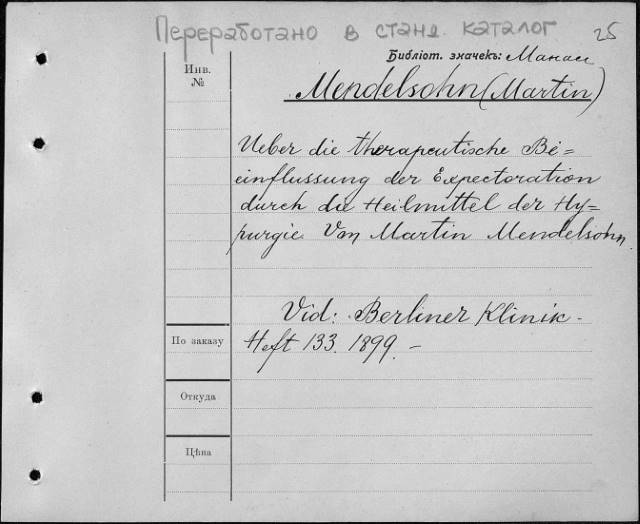 Переработано в станд. каталог
25
Библіот. значекъ:
Инв.
№
Mendelsohn (Martin)
Ueber die therapeutische Be=
einflussung der Expectoration
durch die Heilmittel der Hy=
purgie. Von Martin Mendelsohn.
Vid: Berliner Klinik.
По заказу
Heft 133. 1899. –
Откуда
Цѣна